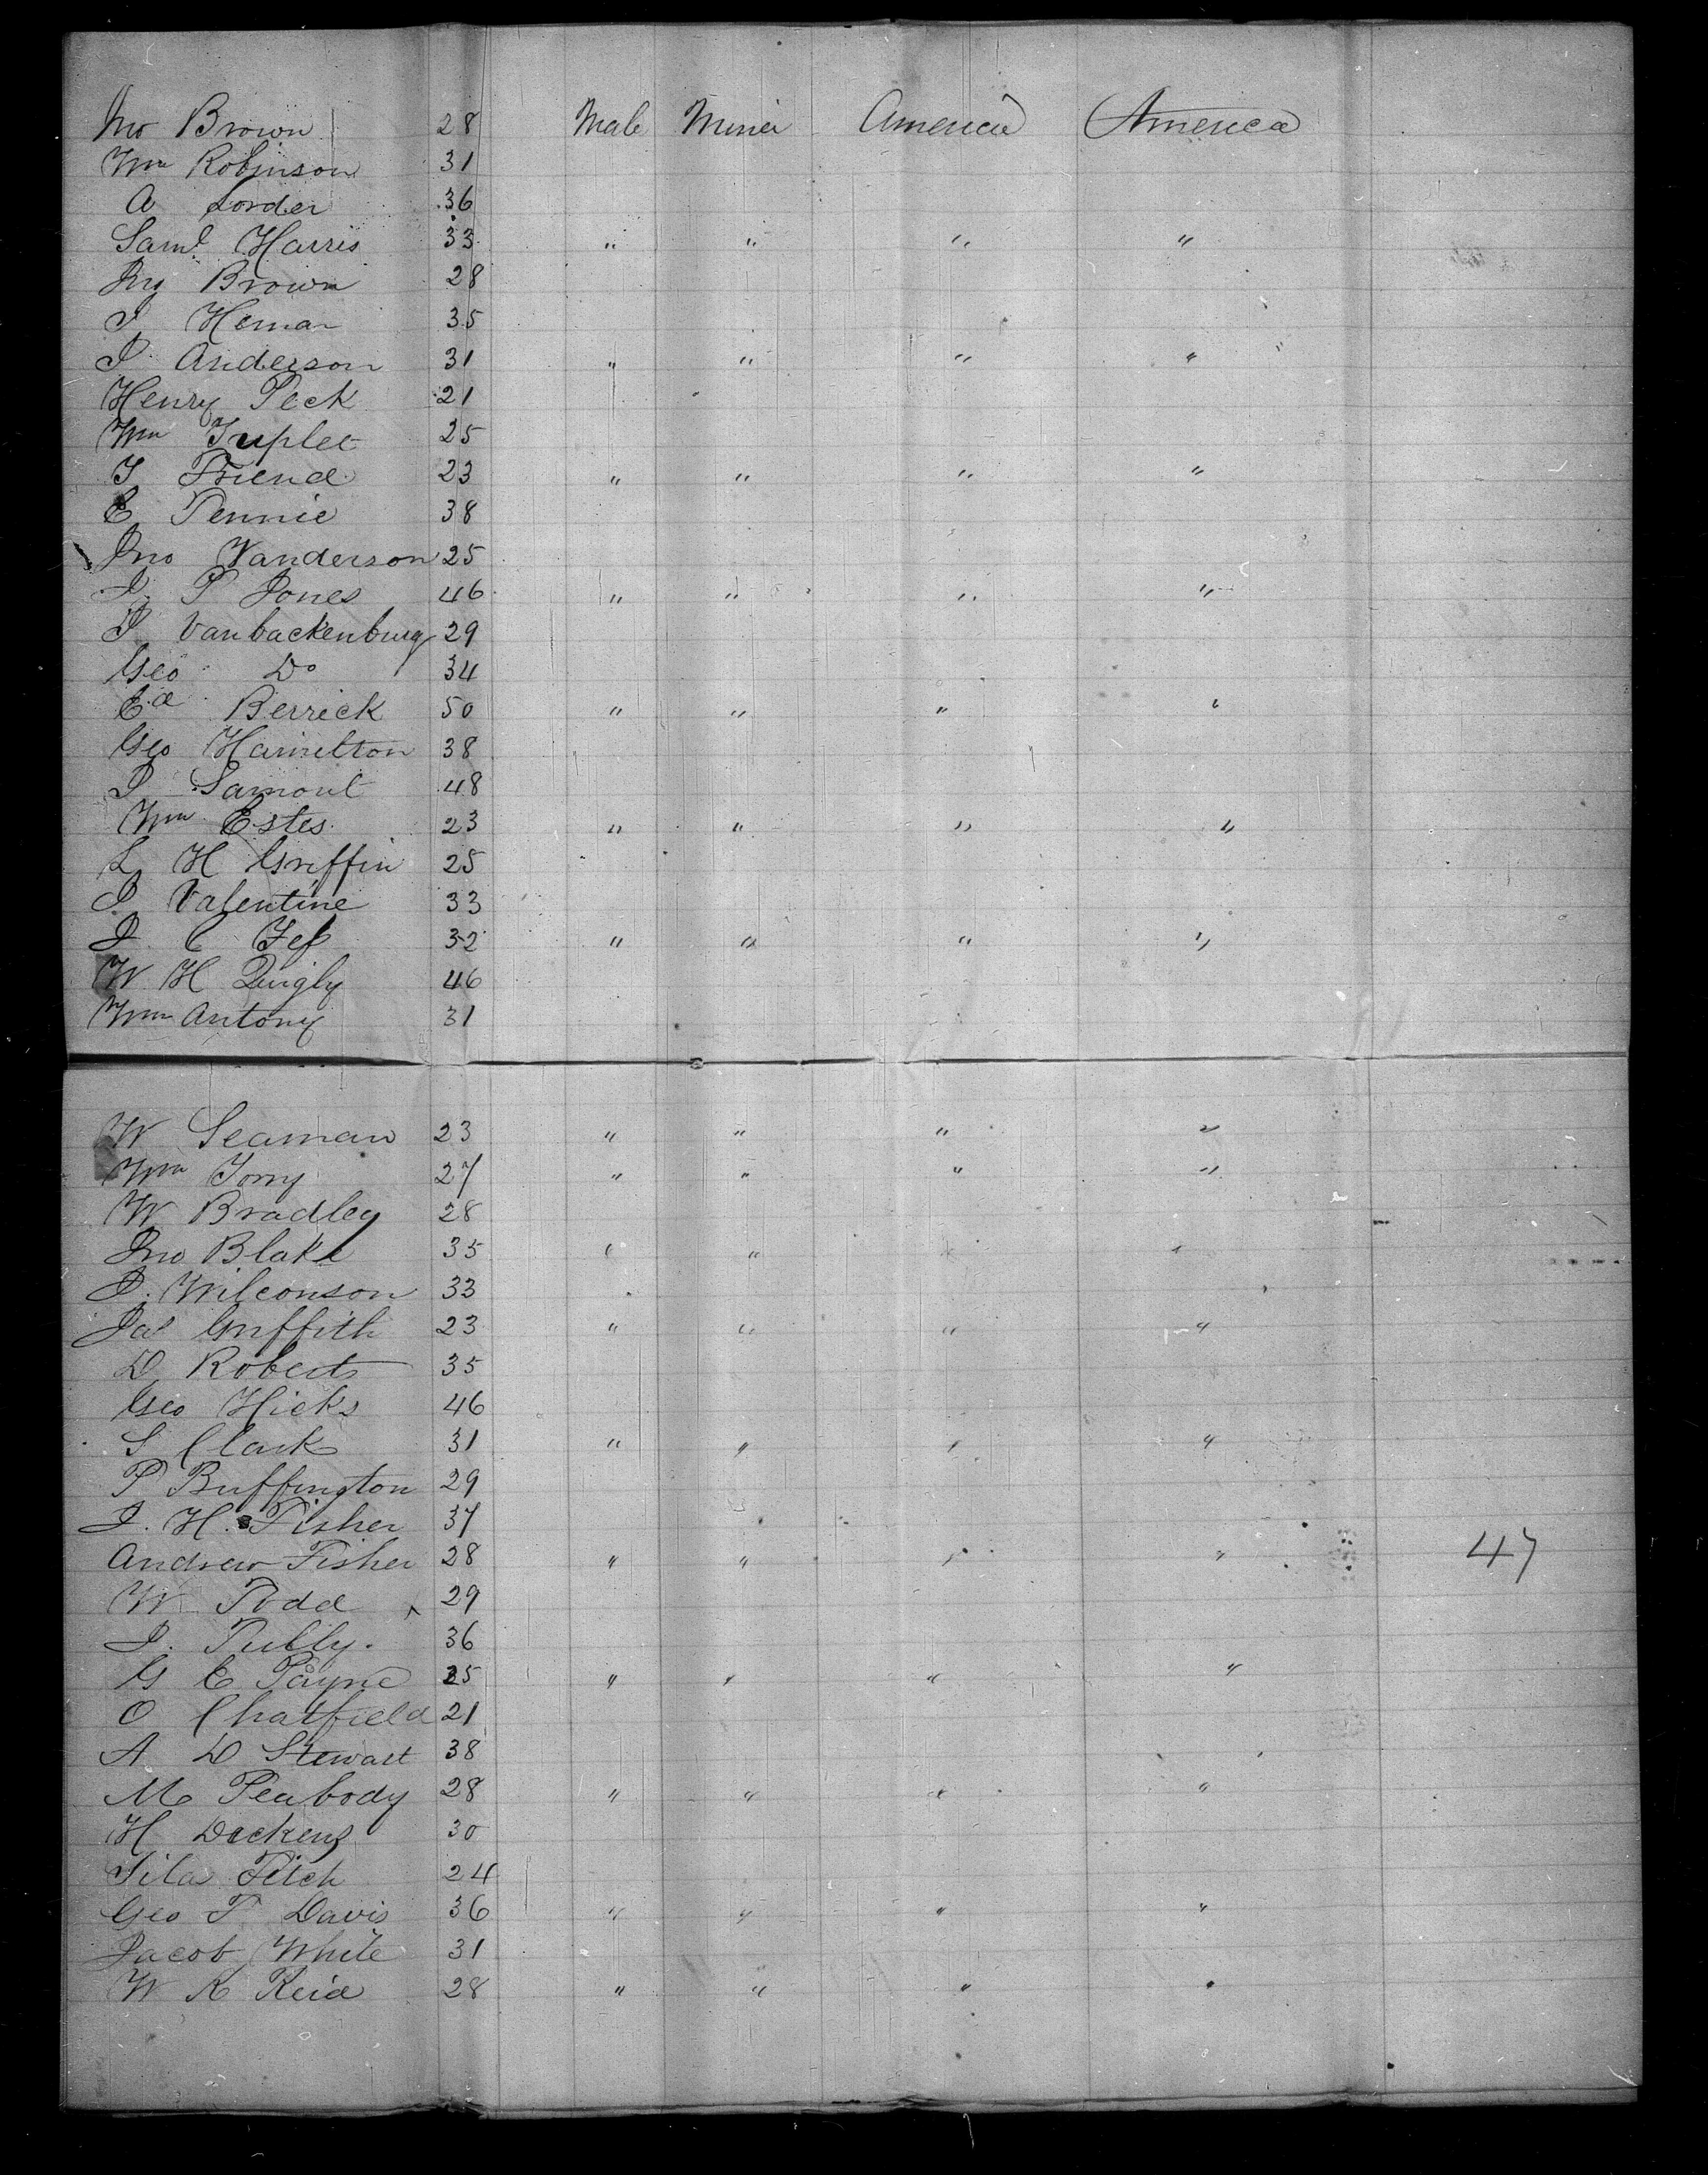 Jno Brown 28 Male Miner America America
Wm Robinson 31
A Lorder 36
Saml Harris 33 " " " "
Jno Brown 28
J Heman 35
J. Anderson 31 " " " "
Henry Peck 21
Wm Tuplet 25
T Friend 23 " " " "
E Pennie 38
Jno Vanderson 25
J. P Jones 46 " " " "
J Vanbackenburg 29
Geo Do 34
Ed Berrick 50 " " " "
Geo Hamelton 38
J Lamont 48
Wm Estes 23 " " " "
L H Griffin 25
J Valentine 33
J. C 32 " " " "
W H Quigly 46
Wm Antony 31
W Seaman 23 " " " "
Wm Torry 27 " " " "
W Bradley 28
Jno Blake 35 " " " "
J. Wilconson 33
Jas Griffith 23 " " " "
D Roberts 35
Geo Hicks 46
S Clark 31 " " " "
P Buffington 29
J. H. Fisher 37
Andrew Fisher 28 " " " " 47
W Todd 29
J. Tully. 36
G C Payne 25 " " " "
O Chatfield 21
A D Stewart 38
M Peabody 28 " " " "
H Dickens 30
Fitch 24
Geo F Davis 36 " " " "
Jacob White 31
W R Reid 28 " " " "